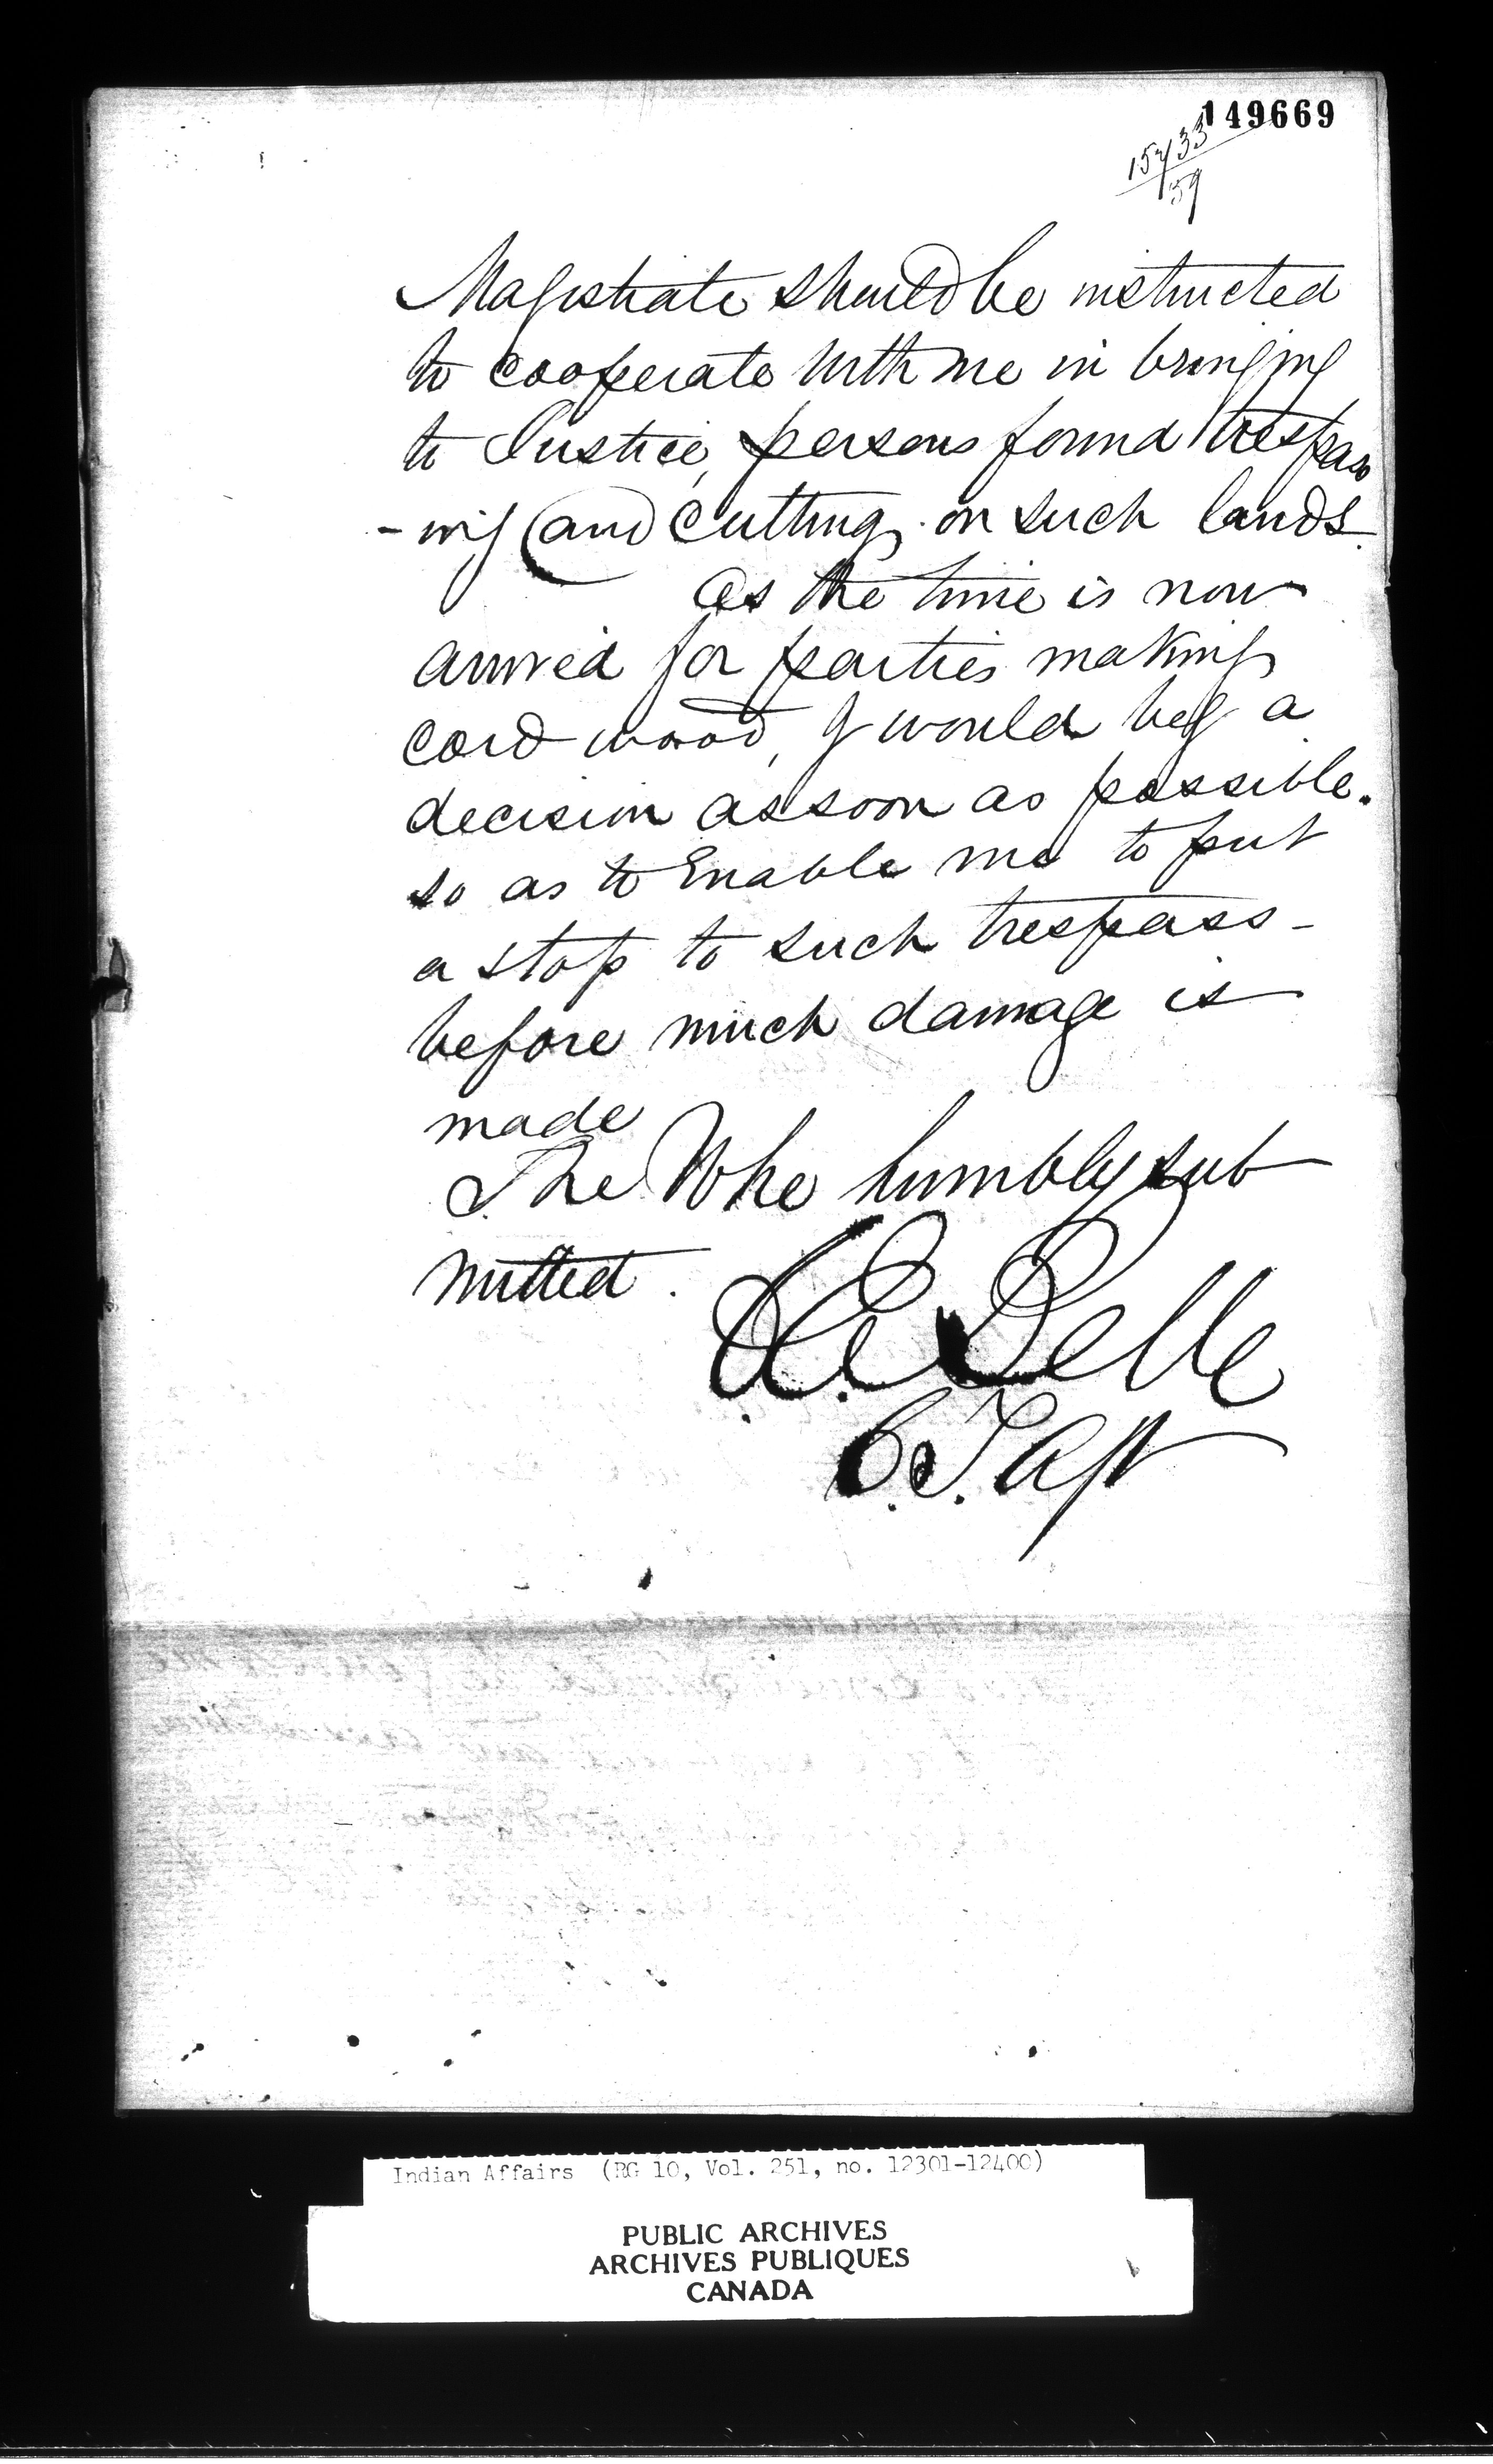 149669
15733
59
Magistrate should be instructed
to cooperate with me in bringing
to Justice, persons found trespass
-ing and cutting on such lands.
As the time is now
arrived for parties making
cord wood, I would beg a
decision as soon as possible.
so as to Enable me to put
a stop to such trespass -
before much damage is
made
The Whe humbly sub
mitted.
A. E. DeBelle
C. T. Agt
Indian Affairs (RG 10, Vol. 251, no. 12301-12400)
PUBLIC ARCHIVES
ARCHIVES PUBLIQUES
CANADA